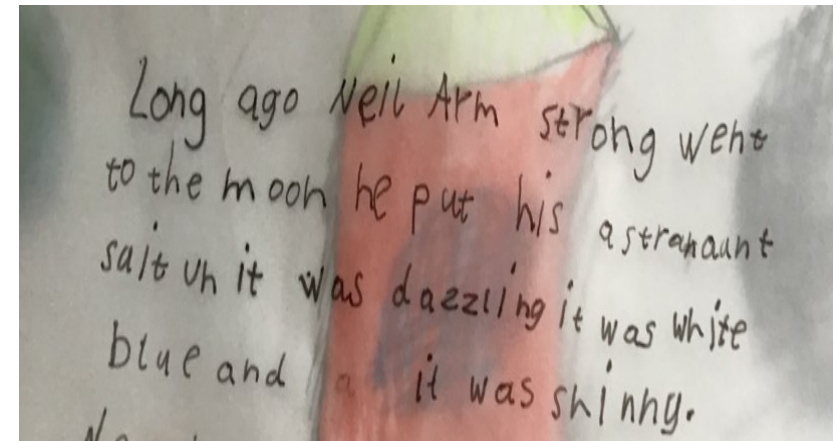 Long ago Neil Arm strong went
to the moon he put his astranaunt
sait un it was dazzling it was white
blue and a it was shinny.